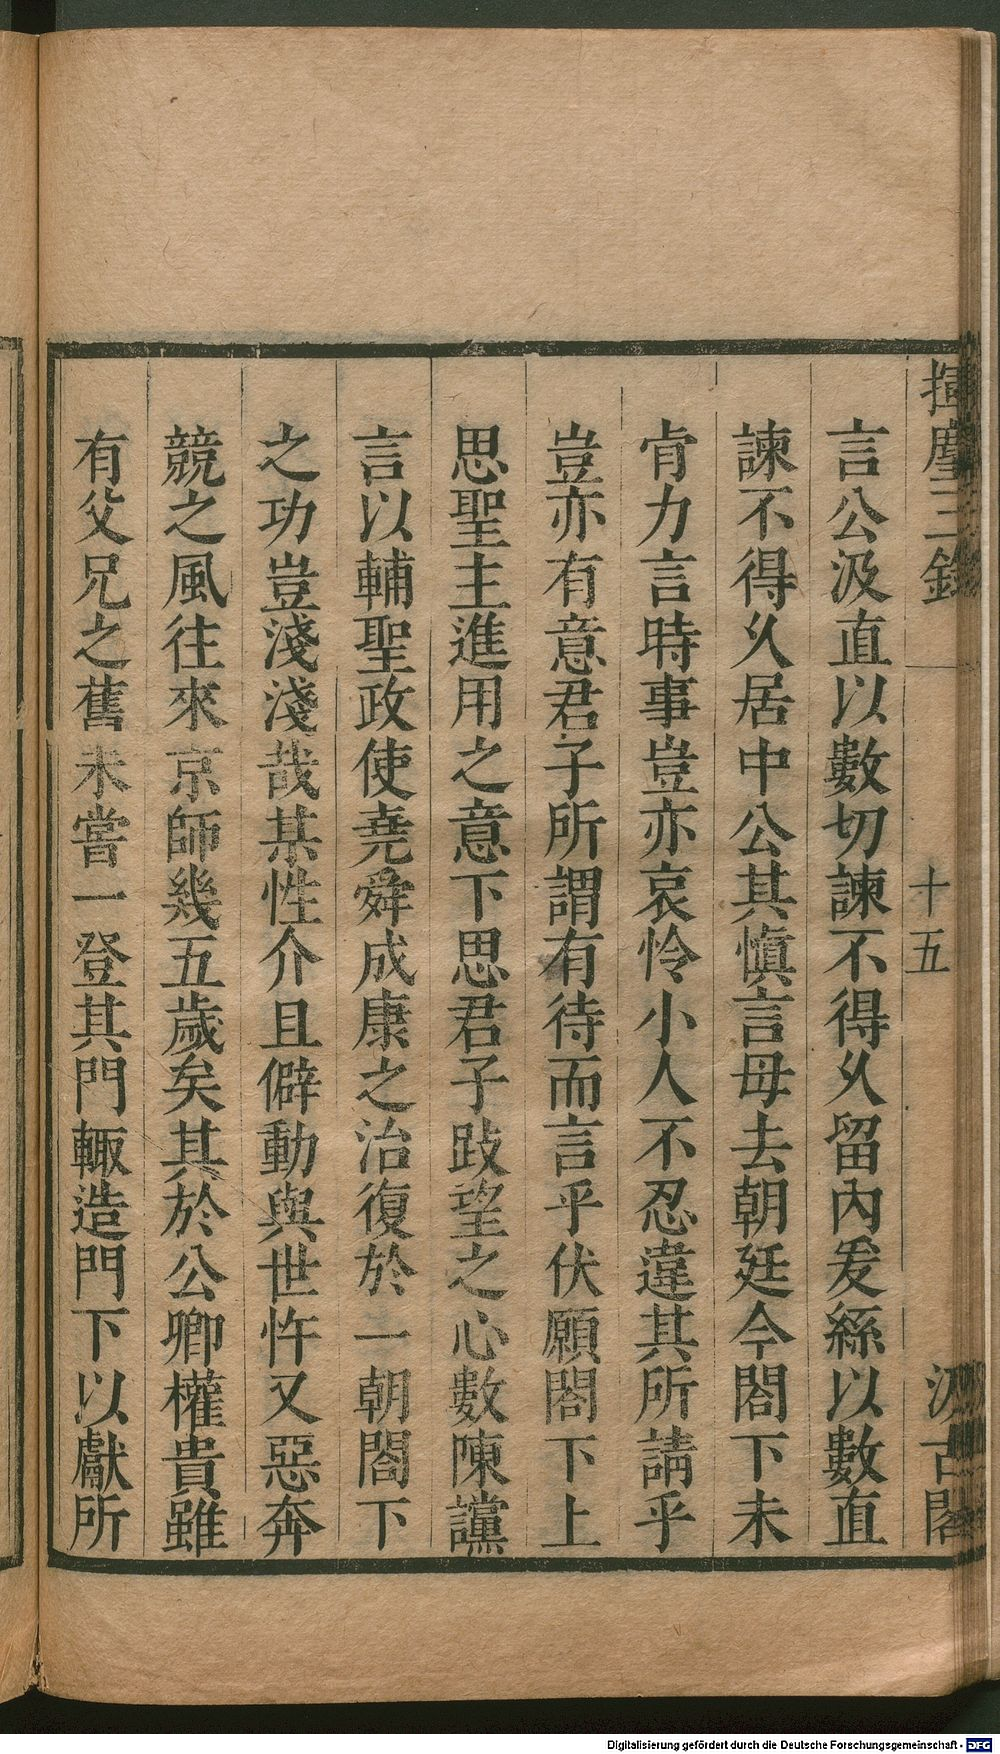 揮麈三錄
十五
汲古閣
言公汲直以數切諫不得久留內爰絲以數直
諫不得久居中公其慎言毋去朝廷今閤下未
肯力言時事豈亦哀怜小人不忍違其所請乎
豈亦有意君子所謂有待而言乎伏願閤下上
思聖主進用之意下思君子跂望之心數陳讜
言以輔聖政使堯舜成康之治復於一朝閤下
之功豈淺淺哉某性介且僻動與世忤又惡奔
競之風往來京師幾五歲矣其於公卿權貴雖
有父兄之舊未嘗一登其門輙造門下以獻所
Digitalisierung gefördert durch die Deutsche Forschungsgemeinschaft - DFG